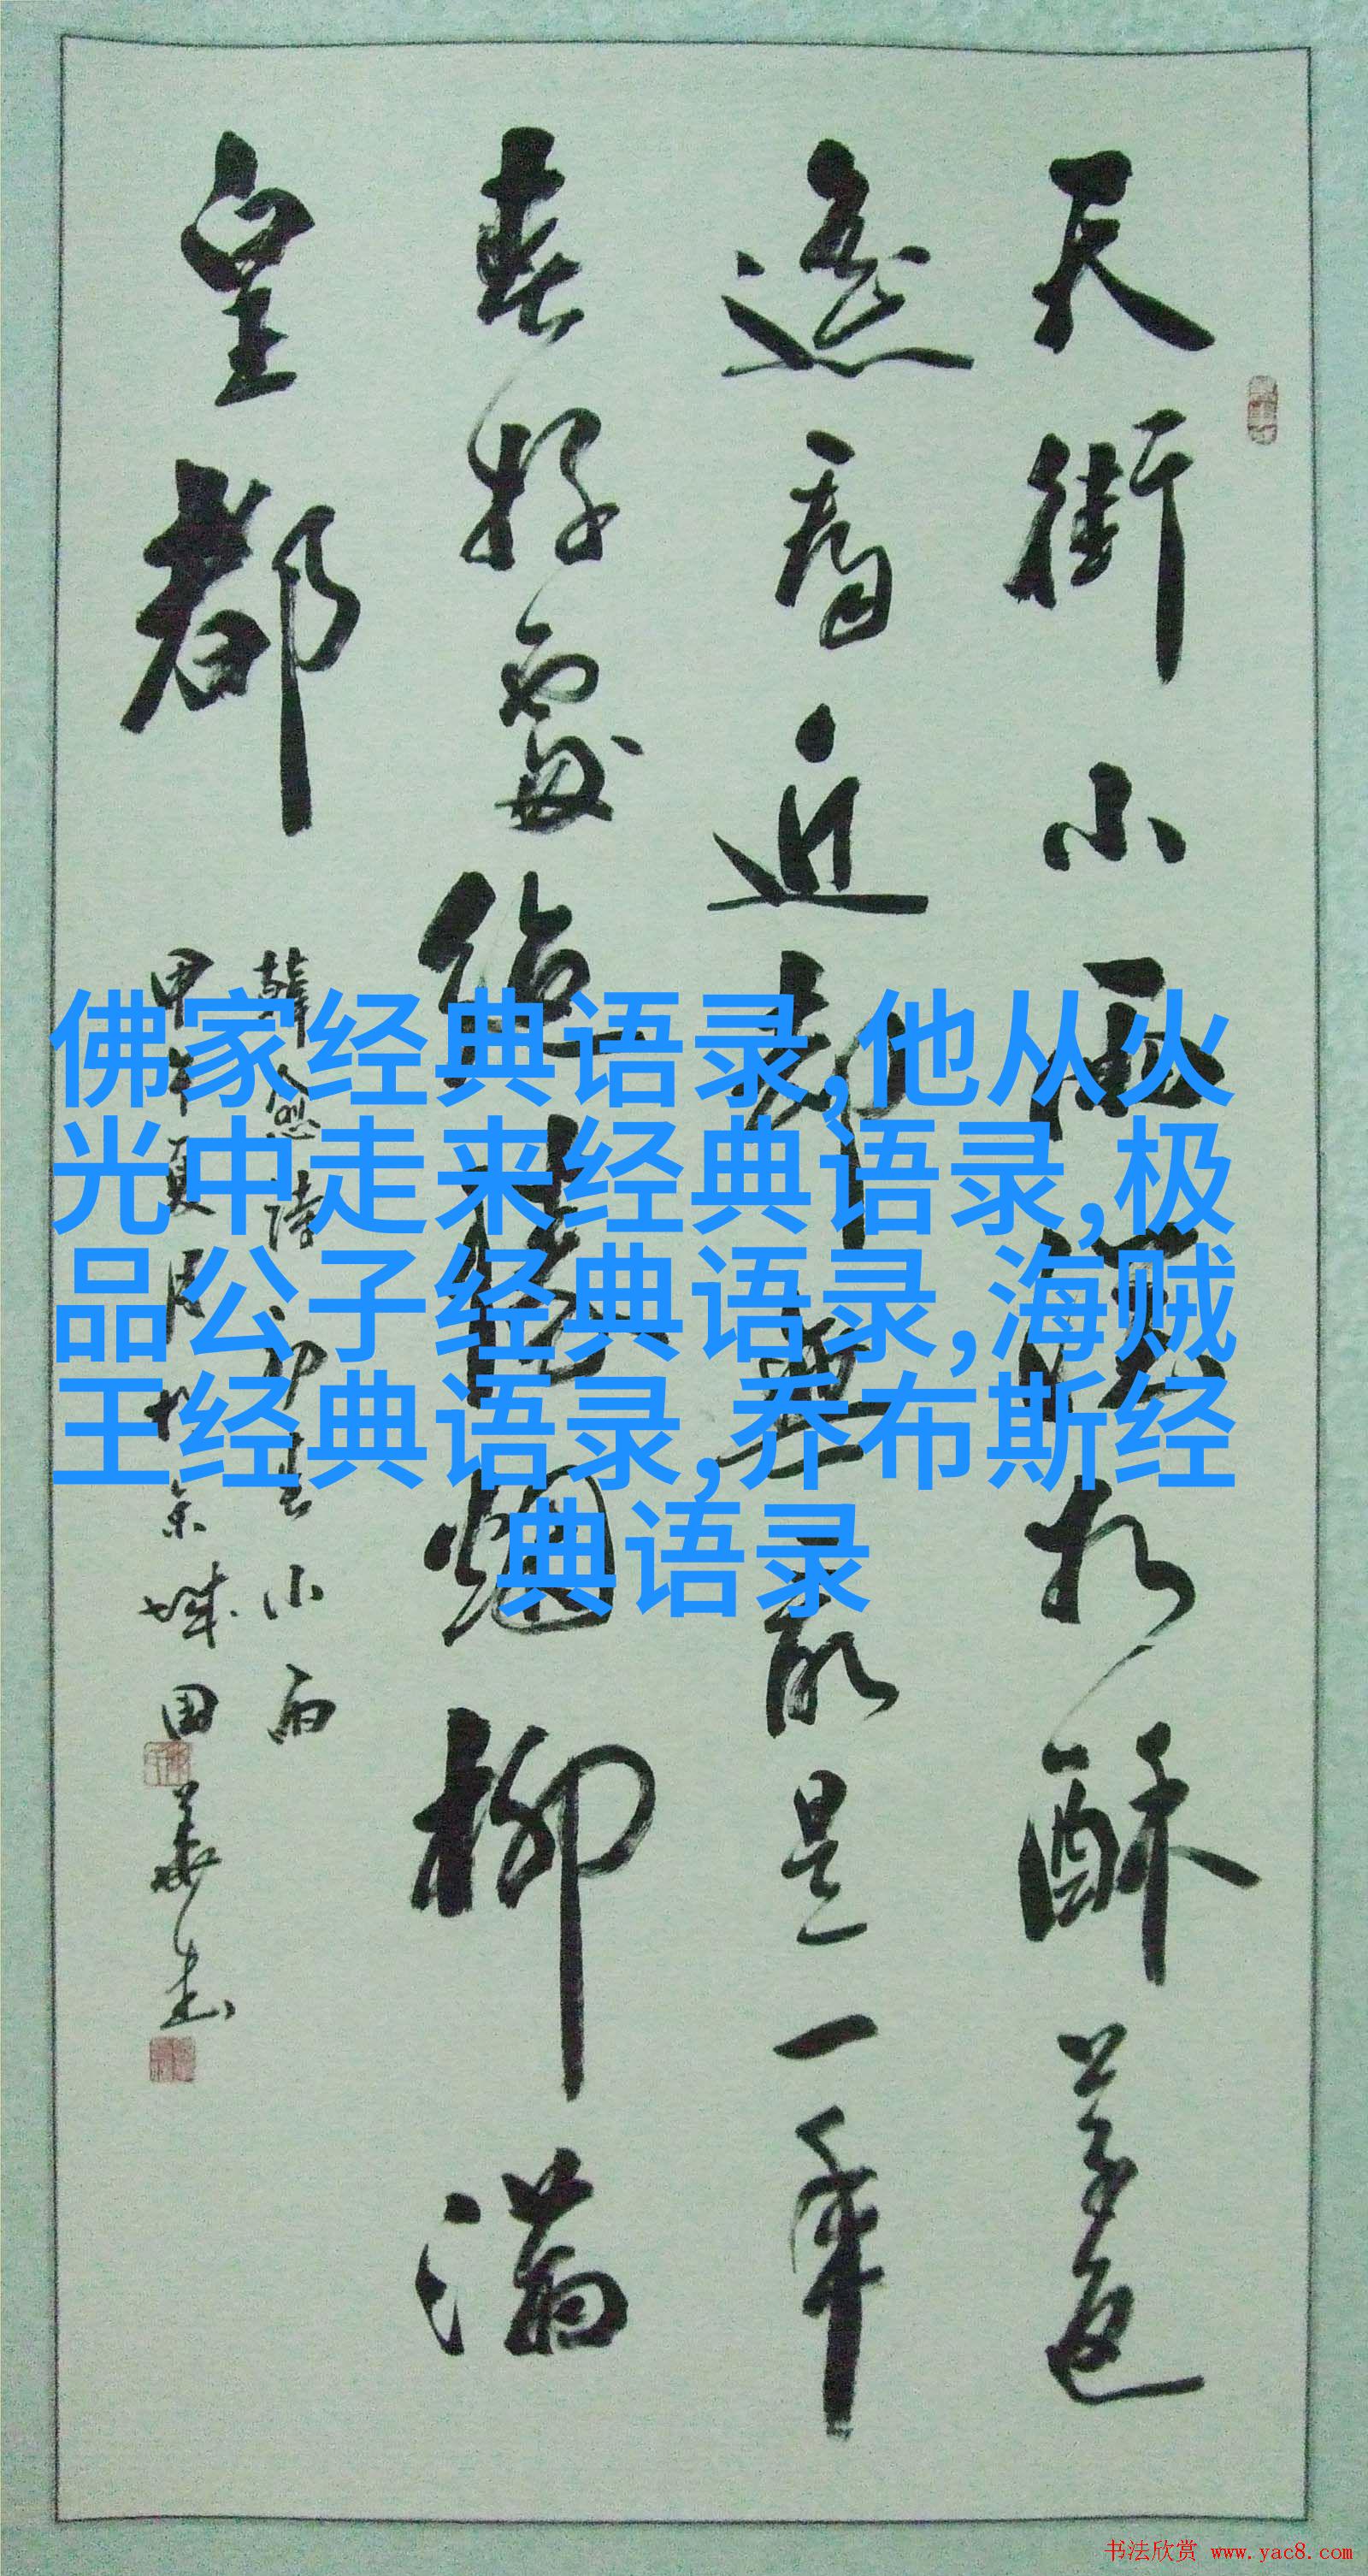 天街小雨润如酥草色
遥看近却无最是一年
春好处绝胜烟柳满
皇都
韩愈诗初春小雨
甲午夏月于京城国华书
佛家经典语录,他从火
光中走来经典语录,极
品公子经典语录,海贼
王经典语录,乔布斯经
典语录
书法欣赏 www.yac8.com